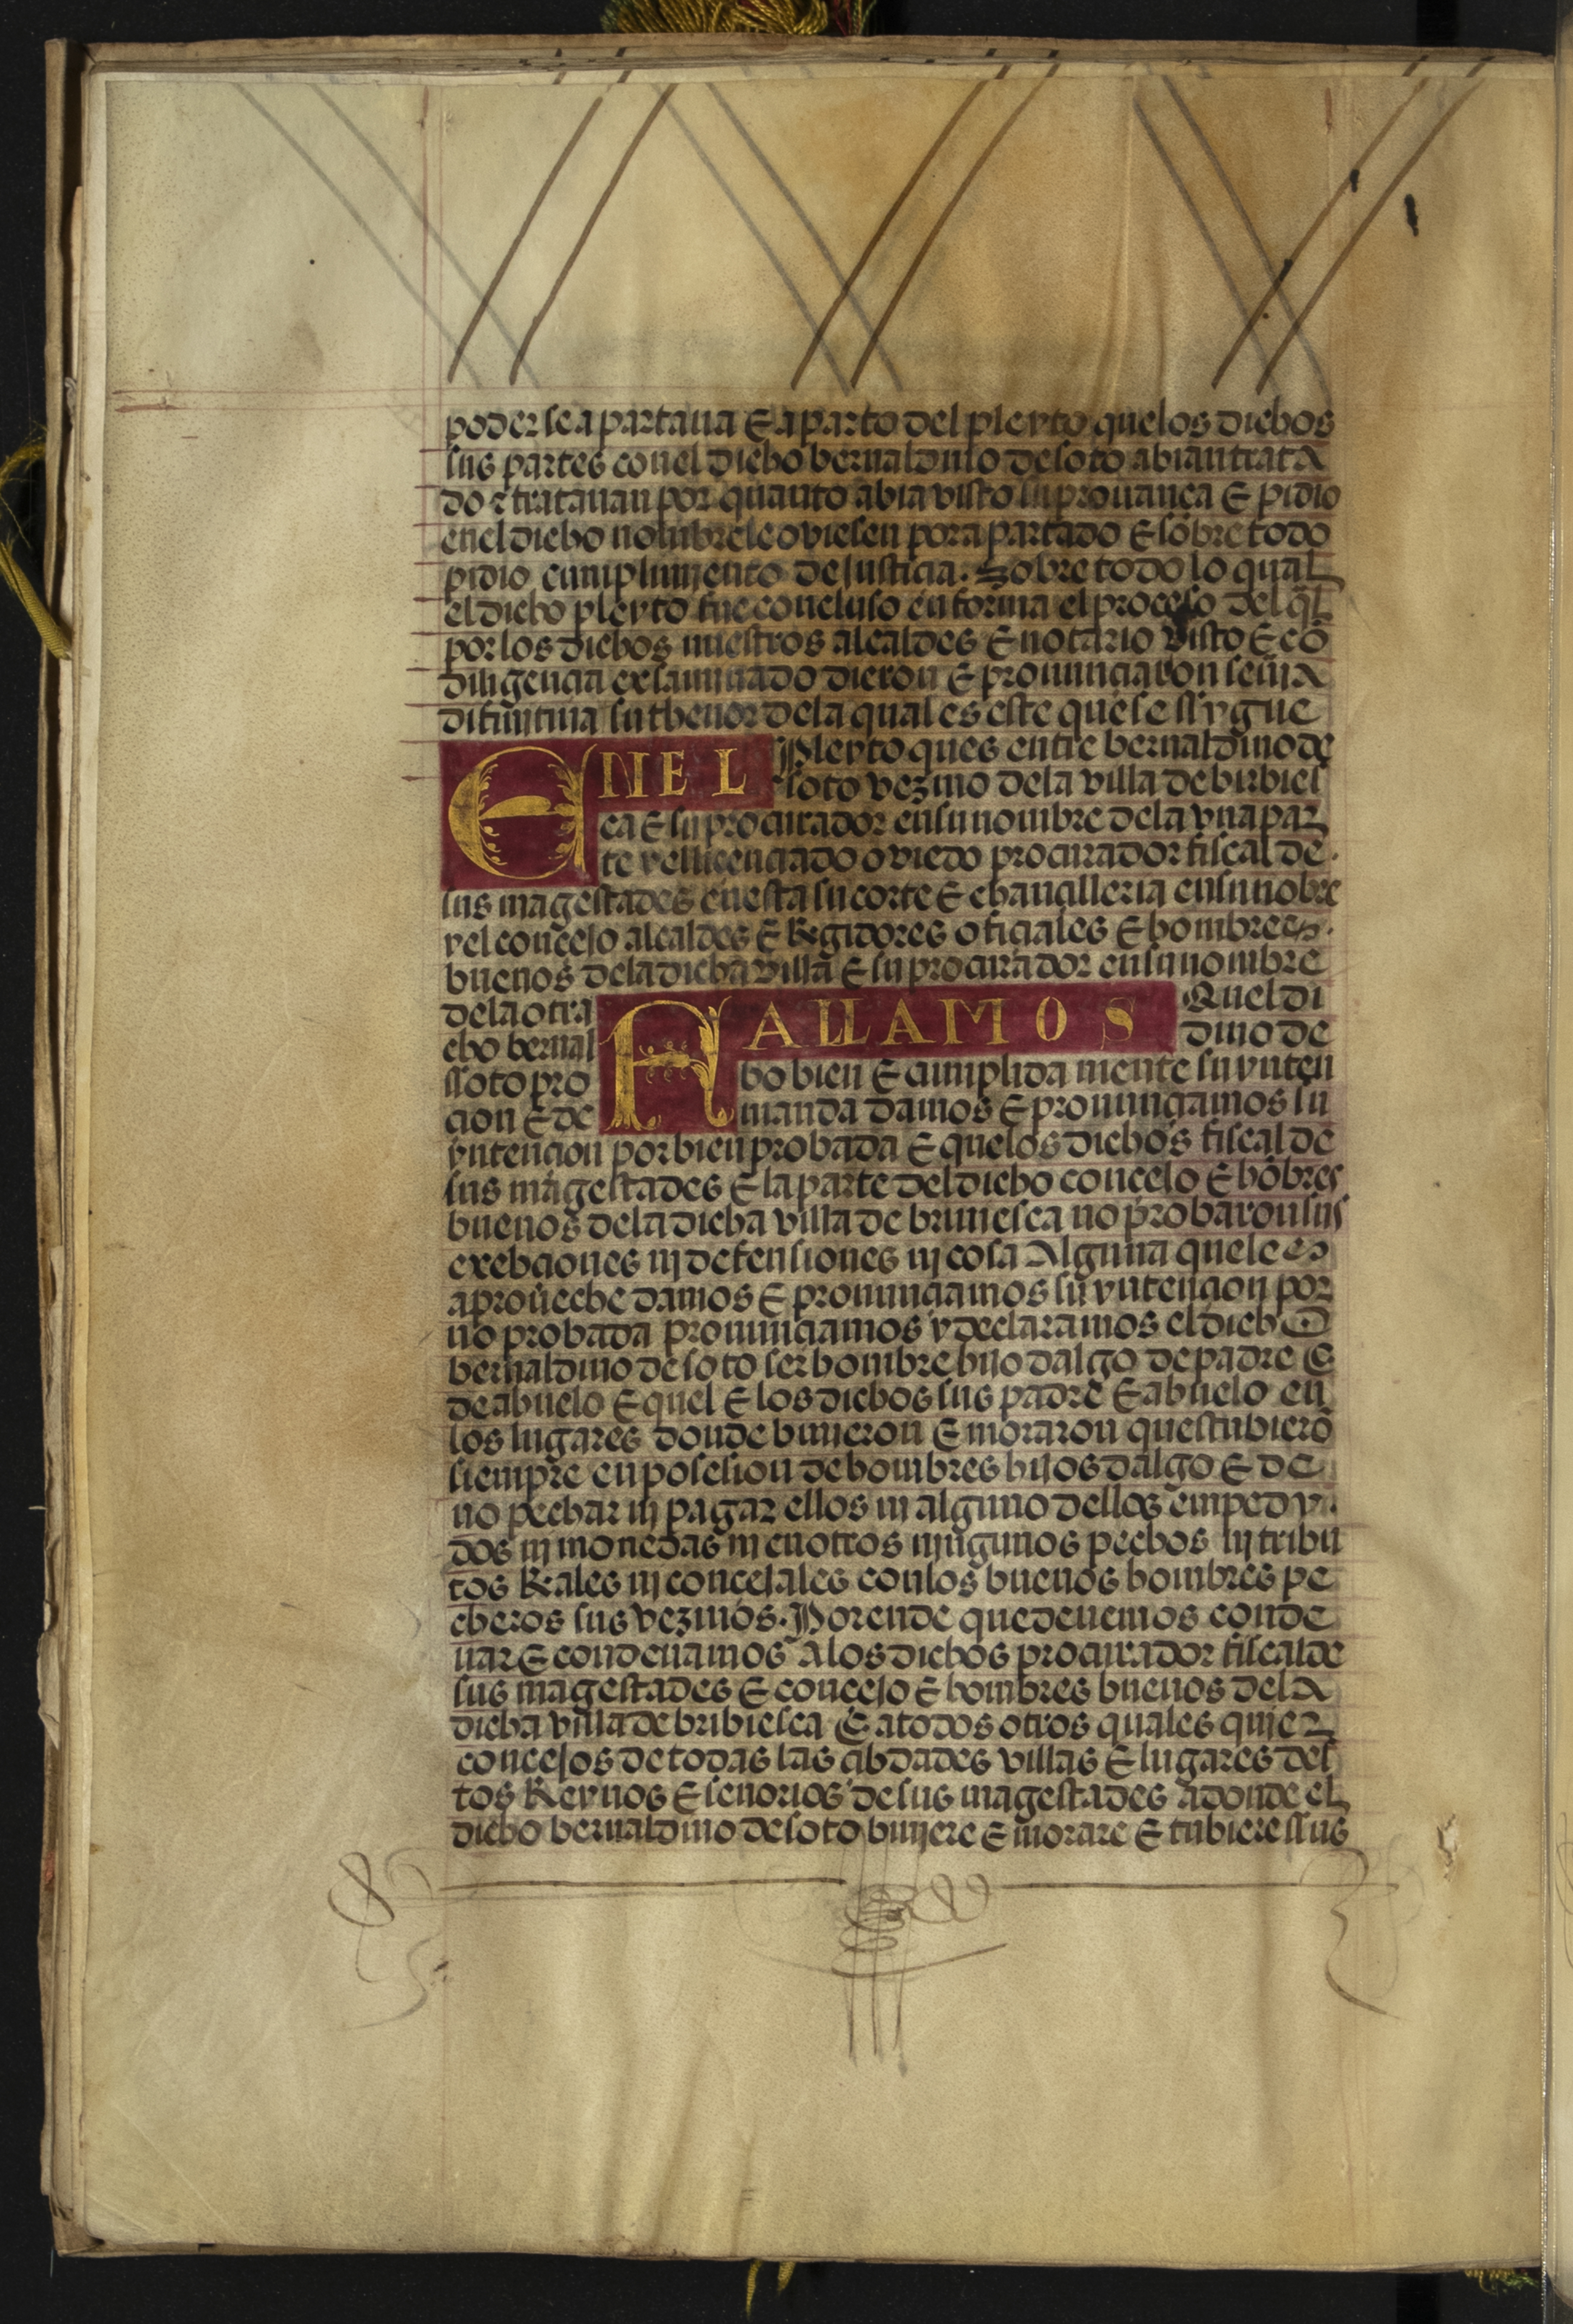 poder se apartaua E aparto del pleyto quelos dichos
sus partes conel dicho bernaldino de soto abian trata
do e tratauan por quanto abia visto su prouança E pidio
enel dicho nombrele oviesen por apartado E sobre todo
pidio cunplimjento de justicia. Sobre todo lo qual
el dicho pleyto fue concluso en forma el proceso del ql̃
por los dichos nuestros alcaldes E notario visto E cõ
diligencia exsaminado dieron E pronunciaron senñja
difinjtiua su thenor dela qual es este que se ssygue
ENEL Pleyto ques entre bernaldino de
soto vezino dela villa de birbies
ca E su procurador en su nombre dela vna par
te y el licenciado oviedo procurador fiscal de
sus magestades en esta su corte E chancilleria en su nobre
y el concejo alcaldes E Regidores oficiales E hombres
buenos dela dicha villa E su procurador en su nombre
dela otra FALLAMOS Quel di
cho bernal dino de
ssoto pro bo bien E cumplida mente su ynten
cion E de manda damos E pronunciamos su
yntencion por bien probada E quelos dichos fiscal de
sus magestades E la parte del dicho concejo E hõbres
buenos dela dicha villa de briuiesca no probaron sus
exebciones nj defensiones nj cosa Alguna que les
aproueche damos E pronunciamos su yntencion por
no probada pronunciamos y declaramos el dicho
bernaldino de soto ser hombre hijo dalgo de padre E
de abuelo E quel E los dichos sus padre E abuelo en
los lugares donde biujeron E moraron questubierõ
siempre en posesion de hombres hijos dalgo E de
no pechar nj pagar ellos ni alguno dellos en pedy
dos nj monedas nj en otros njngunos pechos nj tribu
tos Reales nj concejales con los buenos hombres pe
cheros sus vezinos. Por ende que deuemos conde
nar E condenamos A los dichos procurador fiscal de
sus magestades E concejo E hombres buenos dela
dicha villa de bribiesca E a todos otros quales quier
concejos de todas las cibdades villas E lugares des
tos Reynos E senorios de sus magestades adonde el
dicho bernaldino de soto biujere E morare E tubiere ssus